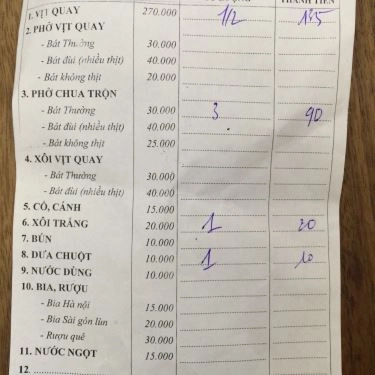 THÀNH TIỀN
1. VỊT QUAY 270.000 1/2 135
2. PHỞ VỊT QUAY
- Bát Thường 30.000
- Bát đùi (nhiều thịt) 40.000
- Bát không thịt 20.000
3. PHỞ CHUA TRỘN
- Bát Thường 30.000 3 90
- Bát đùi (nhiều thịt) 40.000
- Bát không thịt 25.000
4. XÔI VỊT QUAY
- Bát Thường 30.000
- Bát đùi (nhiều thịt) 40.000
5. CỔ, CÁNH 15.000
6. XÔI TRẮNG 20.000 1 20
7. BÚN 10.000
8. DƯA CHUỘT 10.000 1 10
9. NƯỚC DÙNG 10.000
10. BIA, RƯỢU
- Bia Hà nội 15.000
- Bia Sài gòn lùn 20.000
- Rượu quê 30.000
11. NƯỚC NGỌT 15.000
12.